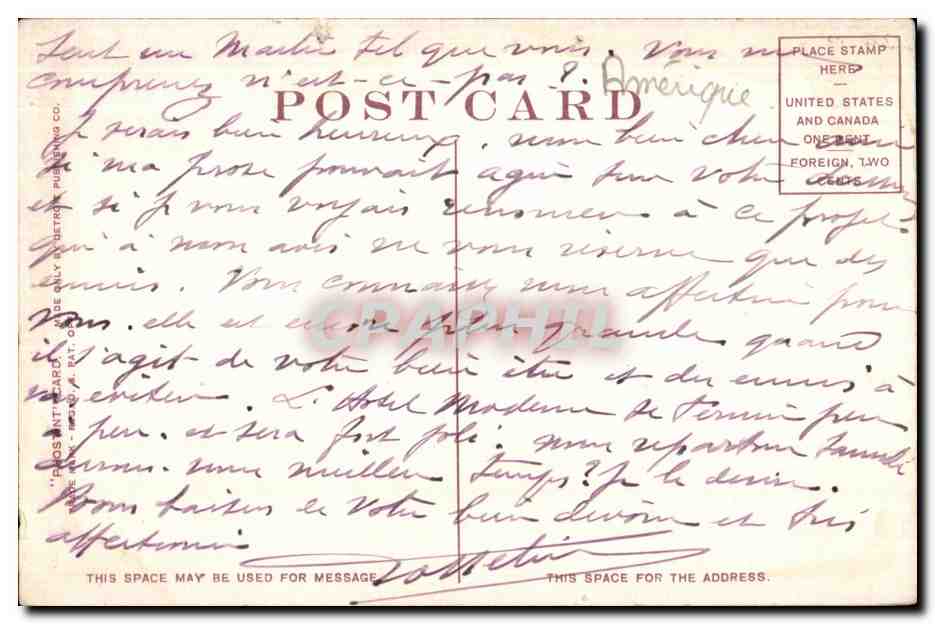 tel que vous. Vous me
comprenez n'est-ce-pas ?
Amérique
POST CARD
PLACE STAMP
HERE
UNITED STATES
AND CANADA
ONE CENT
FOREIGN, TWO
CENTS
Je serais bien heureux, mon bien cher
si ma prose pouvait agir sur votre
et si je vous voyais renoncer à ce projet
qui à mon avis ne vous réserve que des
ennuis. Vous connaissez mon affection pour
vous. elle est encore plus grande quand
il s'agit de votre bien être et des ennuis à
éviter. L'Hotel Moderne se termine peu
à peu. et sera fort joli.
meilleur temps? Je le désire.
Bons baisers de votre bien dévoué et très
affectionné
"PHOSTINT" CARD. MADE ONLY BY DETROIT PUBLISHING CO.
TRADE MARK - REG'D U. S. PAT. OFF.
CPARHIL
THIS SPACE MAY BE USED FOR MESSAGE
THIS SPACE FOR THE ADDRESS.